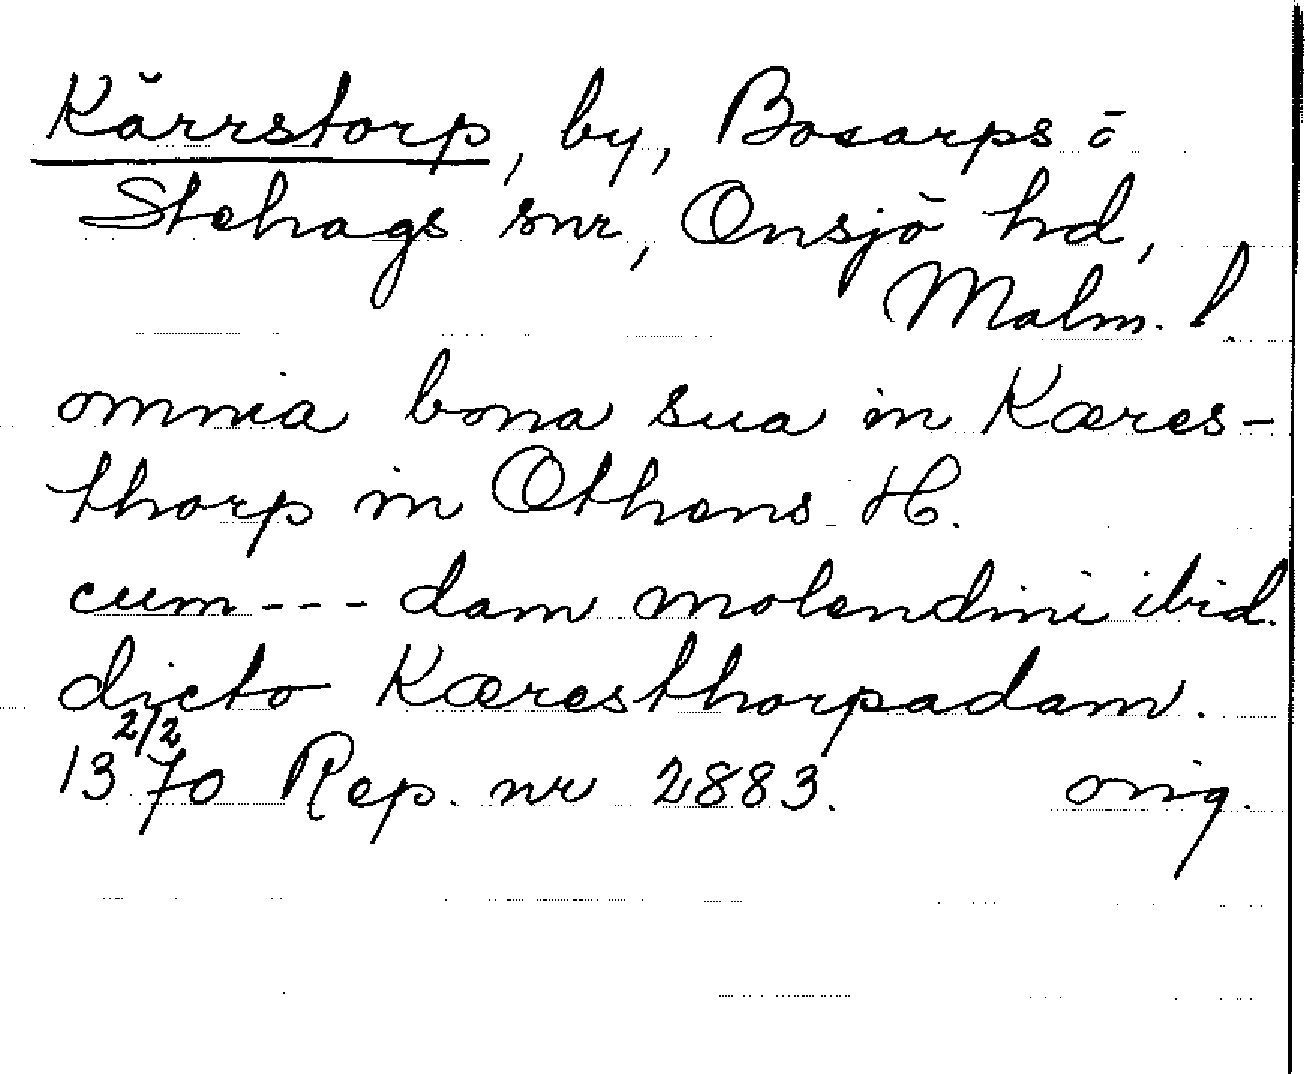 Kärrstorp, by, Bosarps o
Stehags snr, Onsjö hd,
Malm. l.
omnia bona sua in Kæres-
thorp in Othens H.
cum --- dam molendini ibid.
dicto Kæresthorpadam.
13 2/2 70 Rep. nr 2883. orig.